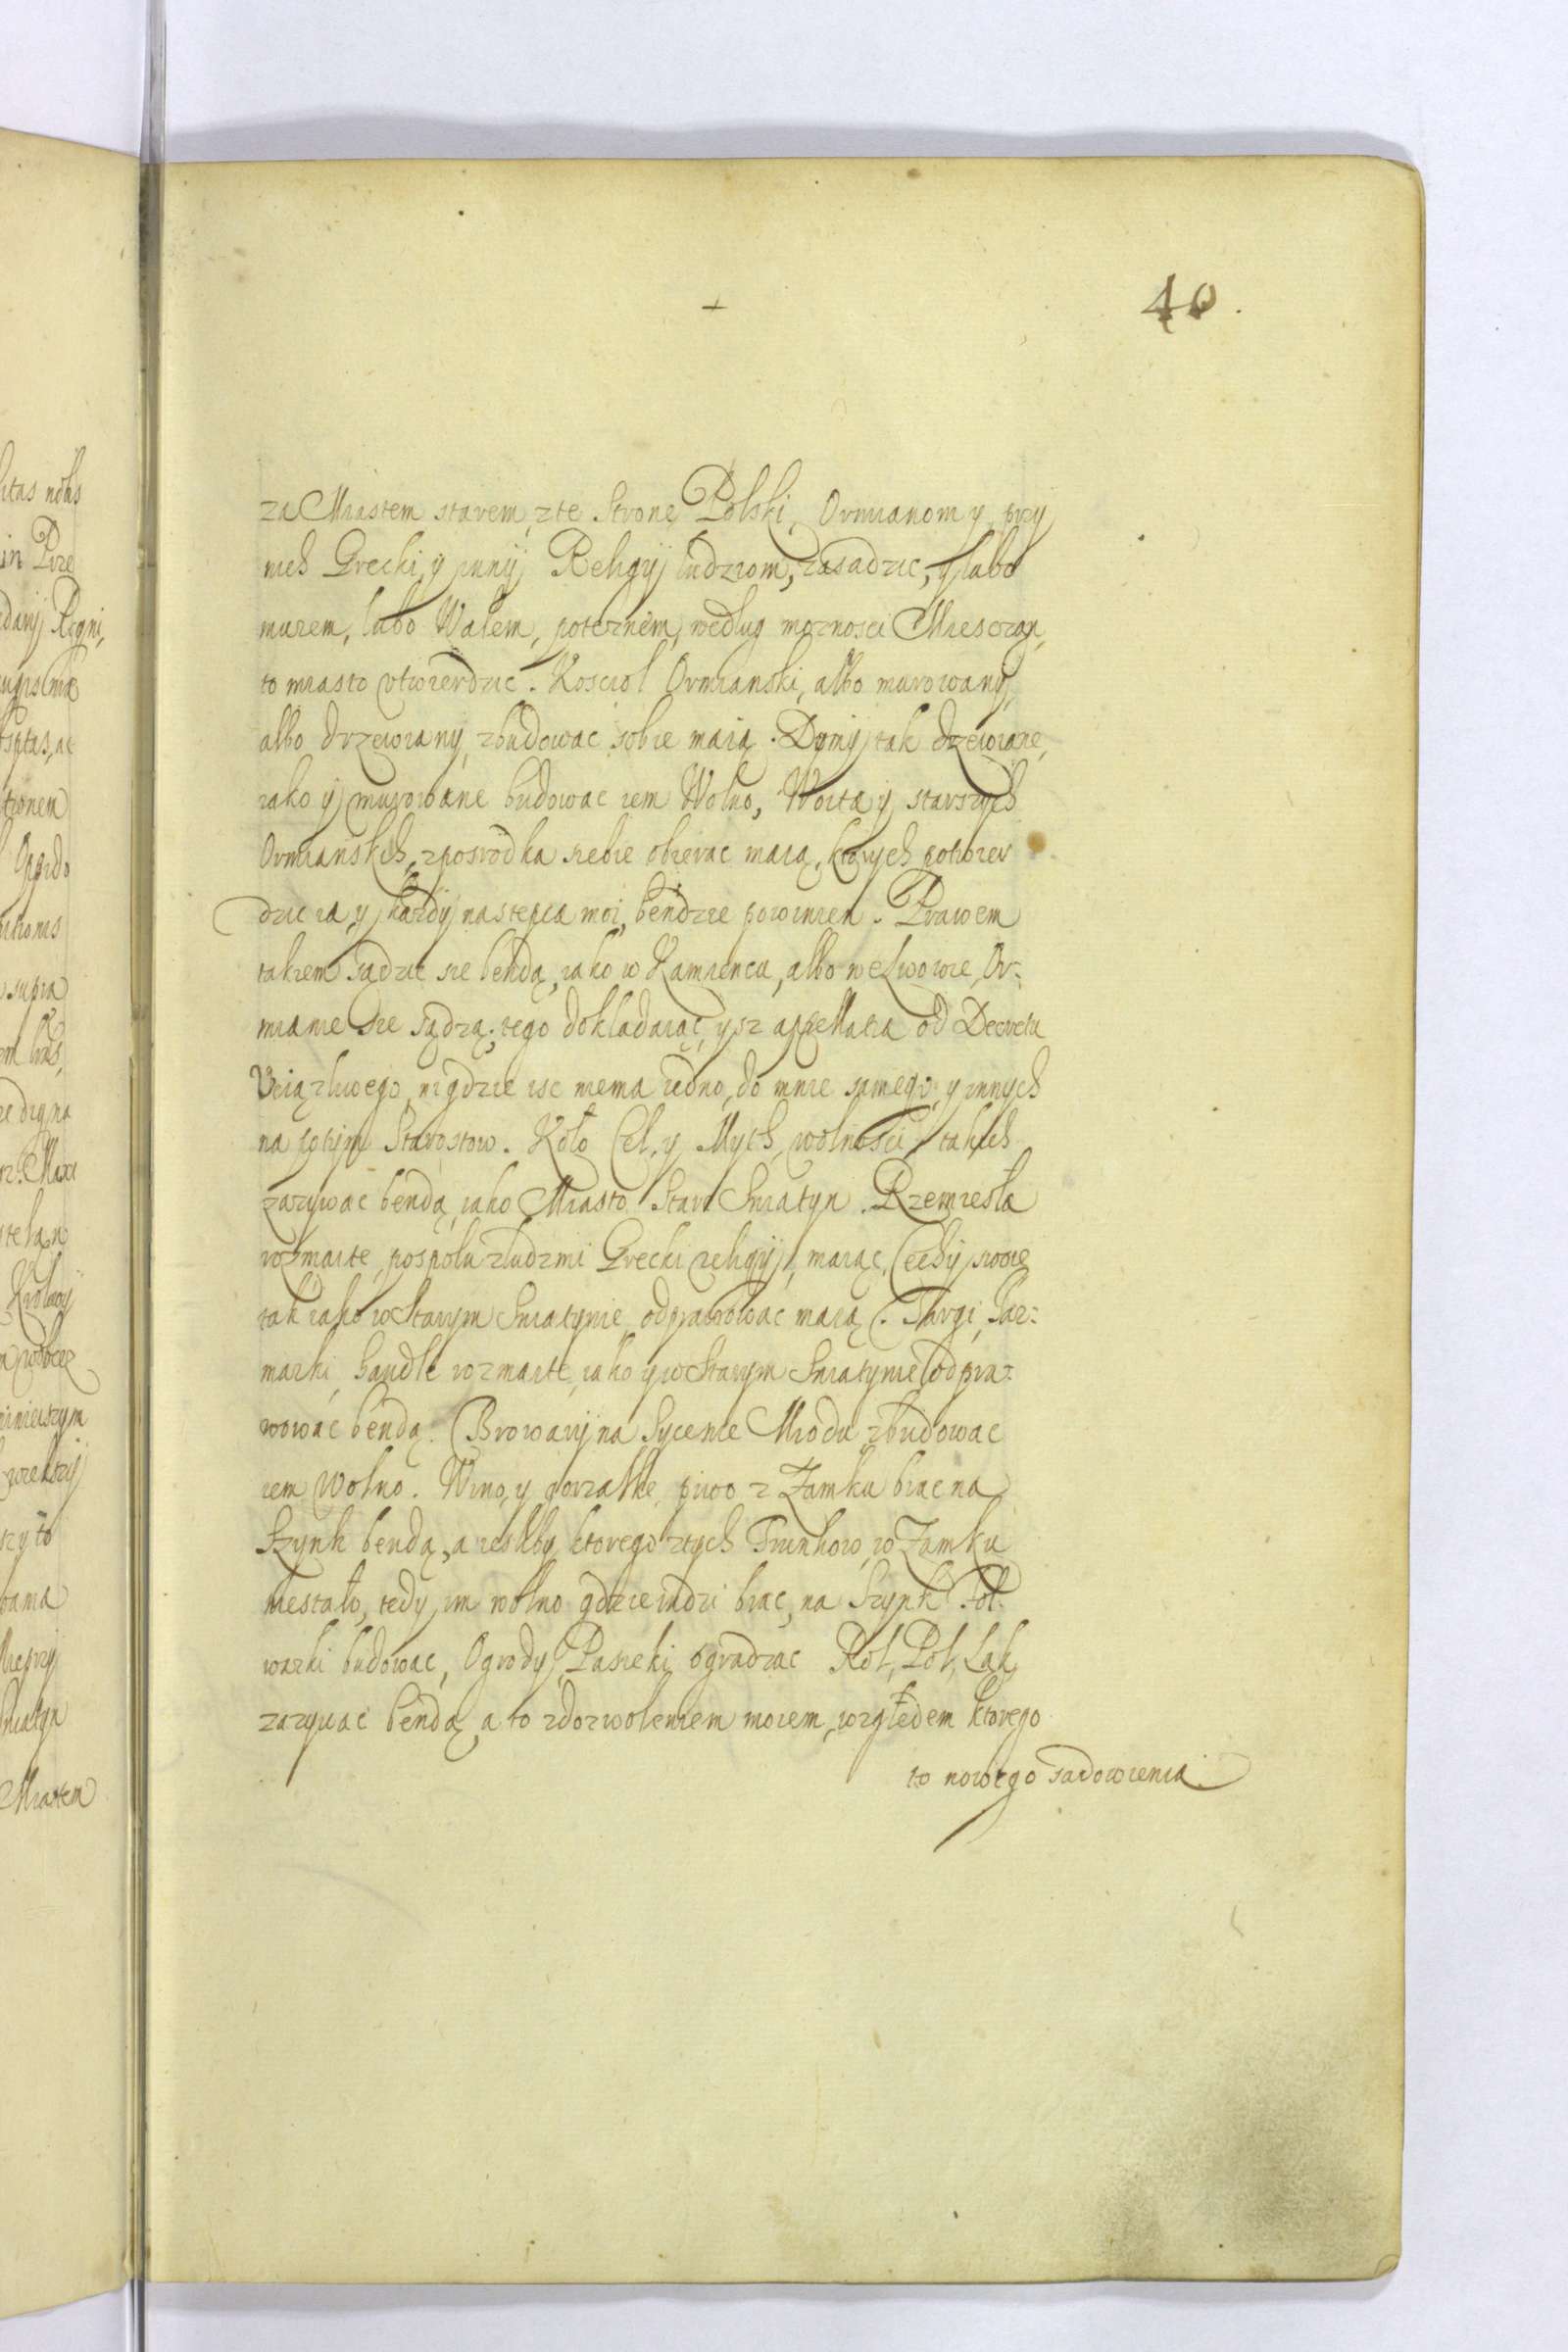 +
40.
za Miastem starem, z te Stronę Polski, Ormianom y przy
nich Grecki, y inny Religij ludziom, zasadzic, y labo
murem, labo Wałem, potęznem, według moznosci Miesczan,
to miasto vtwierdzic. Kosciol Ormianski, albo murowany,
albo drzewiany, zbudowac sobie maią. Domy tak dzewiane,
iako y murowane budowac iem Wolno, Woita y starszych
Ormianskich, zposrodka siebie obierac maią, ktorych potwier
dzic ia, y kazdy nastepca moi, bendzie powinien. Prawem
takiem sądzic sie bendą, iako w Kamiencu, albo we Lwowie, Or:
mianie sie sądzą, tego dokladaiąc, ysz appellatia od Decretu
Vciązliwego, nigdzie isc niema iedno, do mnie samego, y innych
na potym Starostow. Koło Cel, y Myth, wolnosci, takich
zazywac bendą, iako Miasto Stare Sniatyn. Rzemiesła
rozmaite, pospolu zludzmi Grecki religij, maiąc, Cechy swoie
tak iako w Starym Sniatynie, odprawowac maią. Targi, Jar:
marki, handle rozmaite, iako y w Starym Sniatynie odpra:
wowac bendą. Browary na Sycenie Miodu zbudowac
iem Wolno. Wino, y gorzałke, piwo z Zamku brac na
Szynk bendą, a iesliby, ktorego ztych Trunkow, w Zamku
niestało, tedy im wolno gdzie indzi brac, na Szynk. Fol:
warki budowac, Ogrody, Pasieki ogradzac Rol, Pol, Lak,
zazywac bendą, a to zdozwoleniem moiem, względem ktorego
to nowego sadowienia